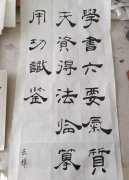 學書六要氣質
天資得法臨摹
用功識鑒